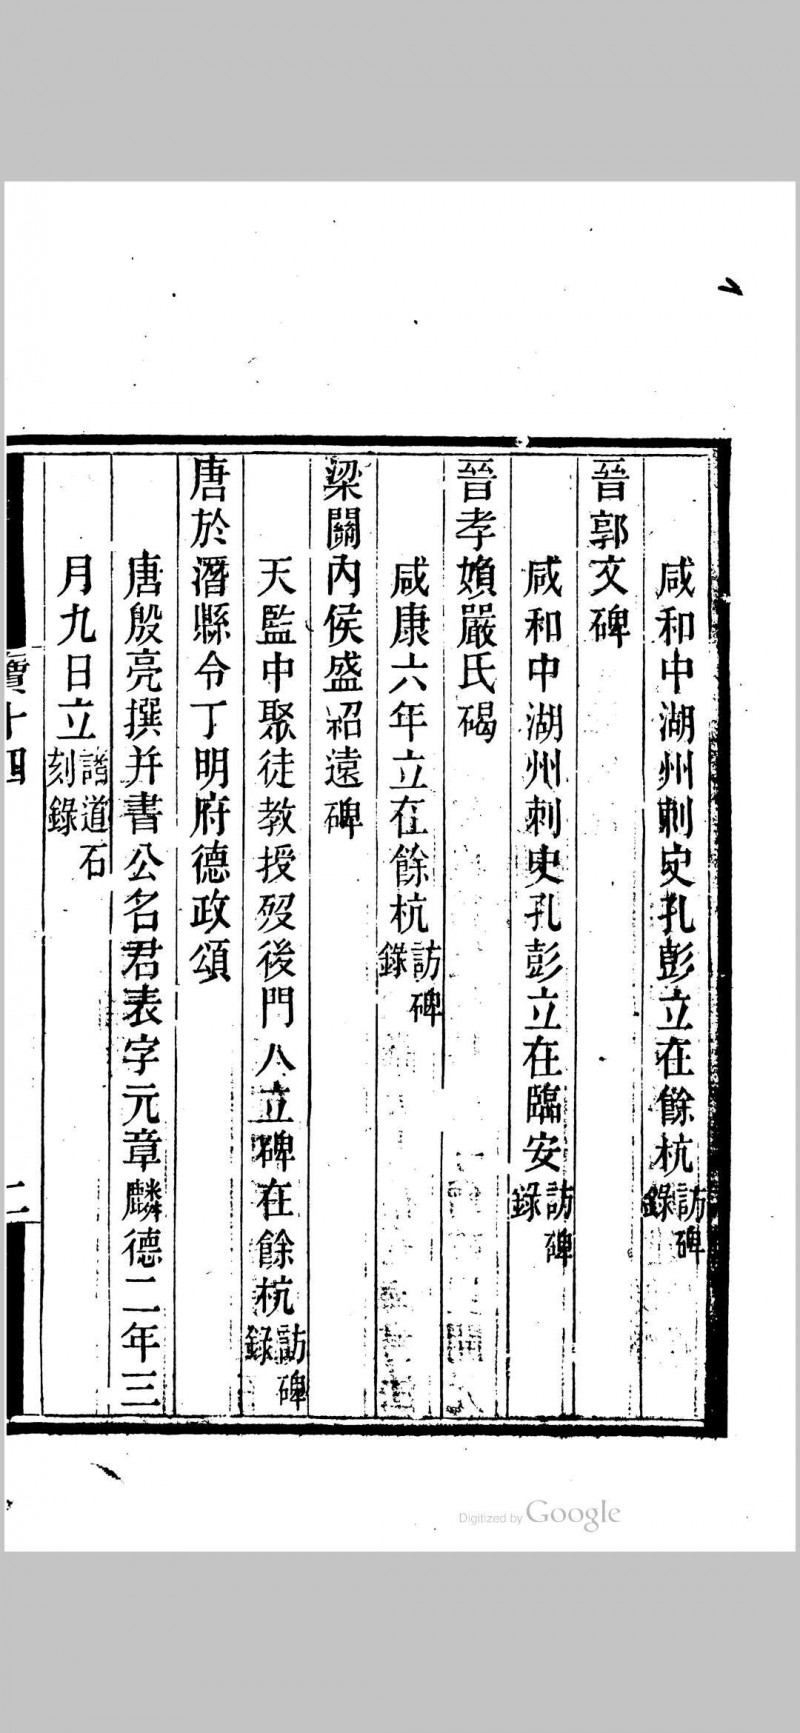 咸和中湖州刺史孔彭立在餘杭訪碑錄
晉郭文碑
咸和中湖州刺史孔彭立在臨安訪碑錄
晉孝嬪嚴氏碣
咸康六年立在餘杭訪碑錄
梁關內侯盛紹遠碑
天監中聚徒教授歿後門人立碑在餘杭訪碑錄
唐於潛縣令丁明府德政頌
唐殷亮撰并書公名君表字元章麟德二年三
月九日立諸道石刻錄
寶十四
二
Digitized by Google